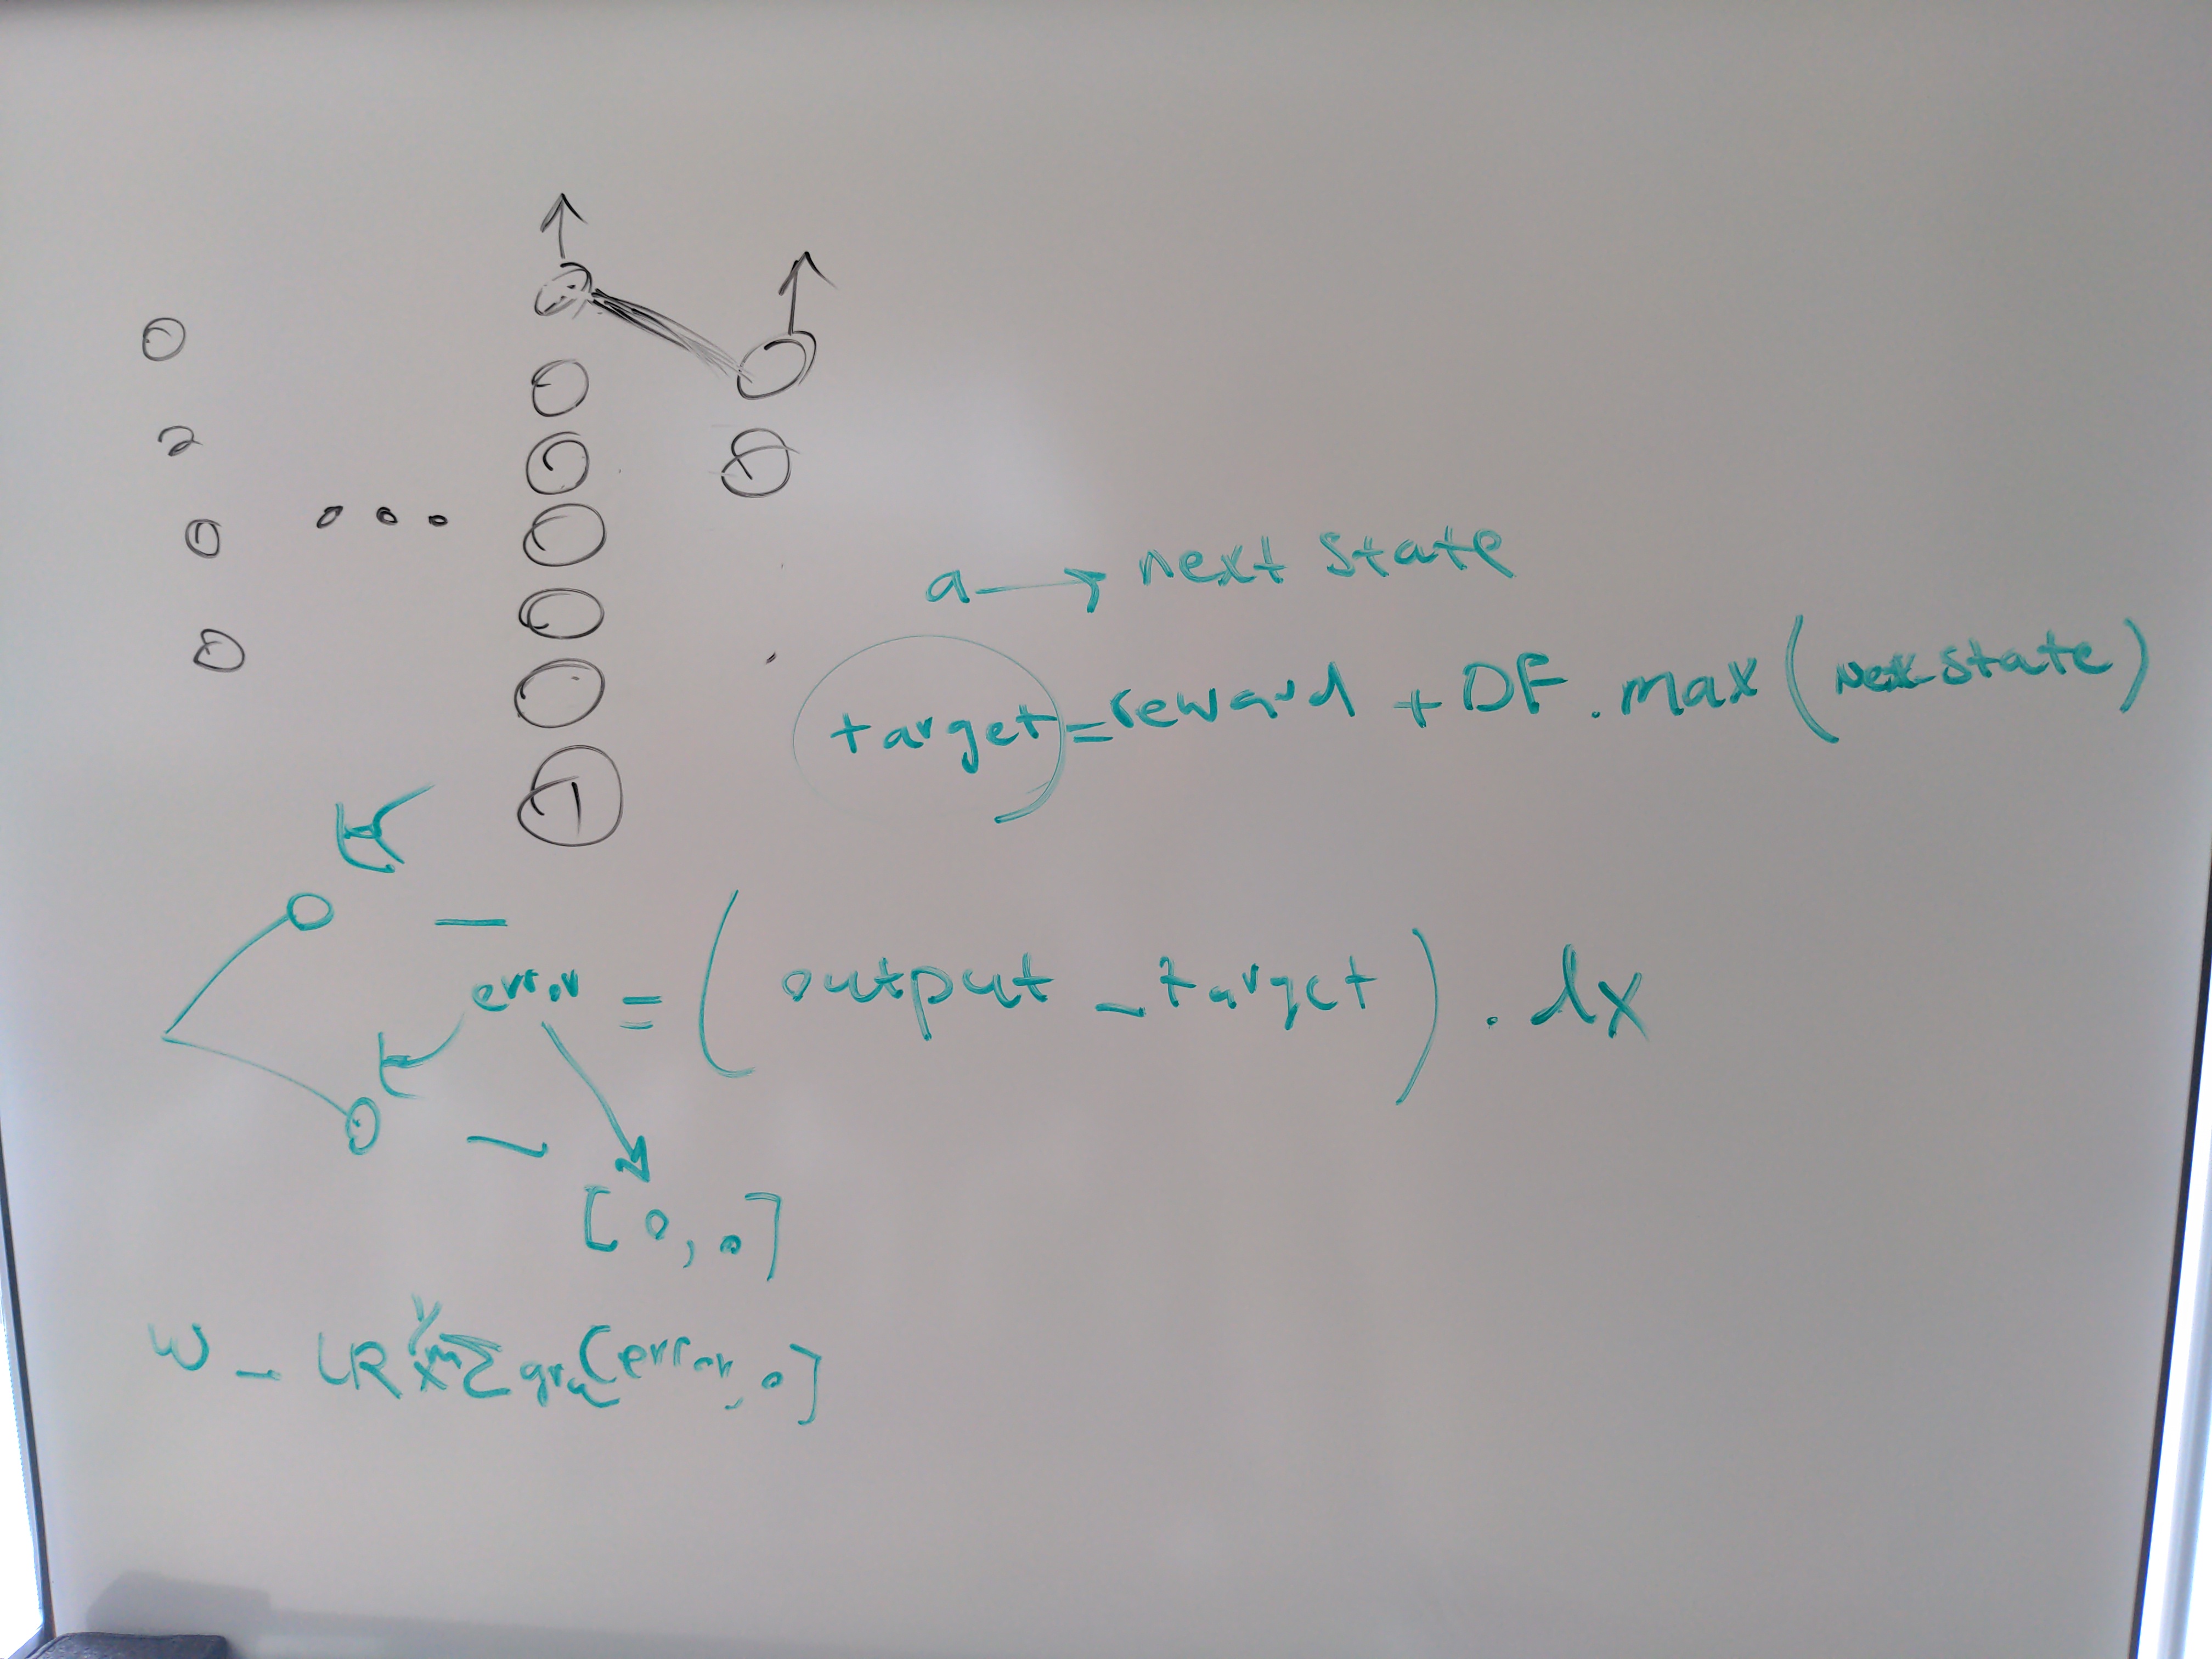 a → next state
target = reward + DF . max (next state)
error = (output - target) . dx
[0, 0]
W - LR 1/m Σ gra [error, 0]